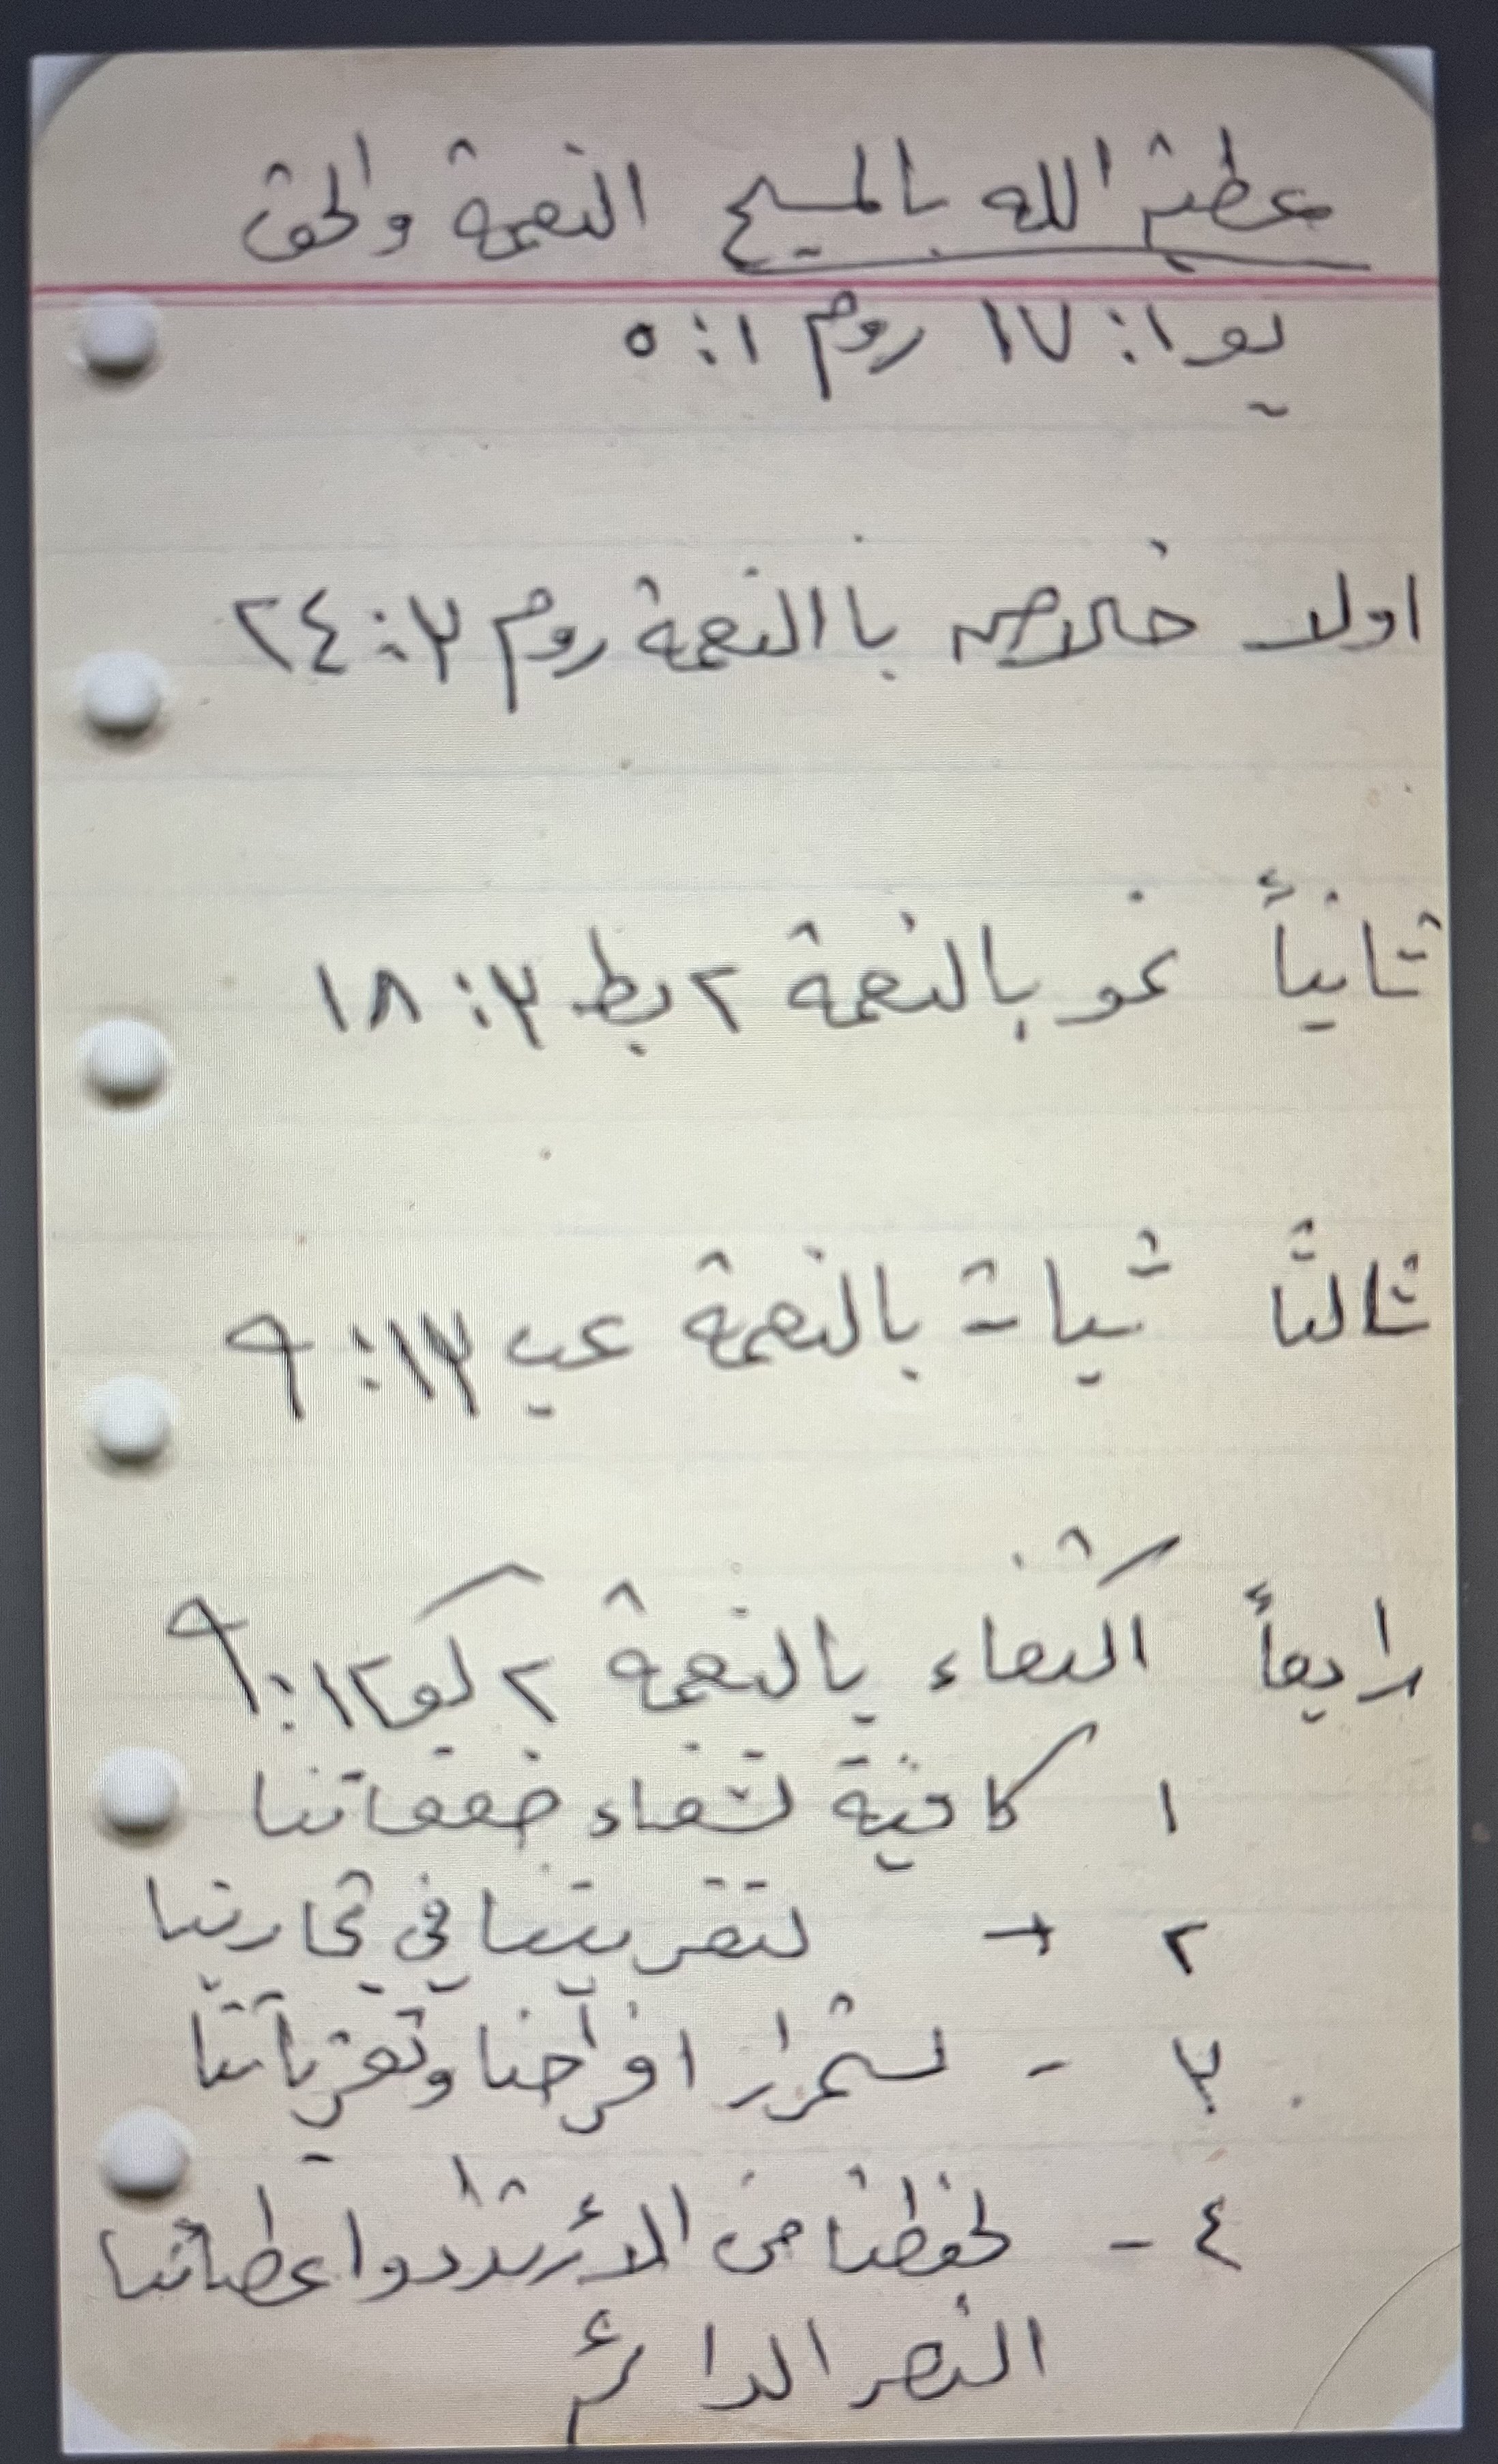 عطية الله بالمسيح النعمة والحق
يو١: ١٧ روم ١: ٥
اولا خلاص باالنعمة روم ٣: ٢٤
ثانيأ نمو بالنعمة ٢ بط ٣: ١٨
ثالثا ثبات بالنعمة عب ١٣: ٩
رابعأ اكتفاء بالنعمة ٢ كو ١٢: ٩
١ كافية لشفاء ضعفاتنا
٢ + لتعزيتنا في تجاربنا
٣ - لستمرار افراحنا وتعزياتنا
٤ - لحفظنا من الأرتداد واعطائنا
النصر الدائم